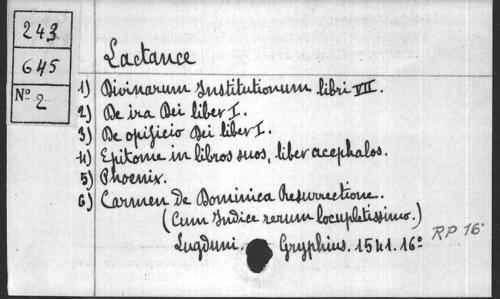 243
645
Nº 2
Lactance
1) Divinarum Institutionum libri VII.
2) De ira Dei liber I.
3) De opificio Dei liber I.
4) Epitome in libros suos, liber acephalos.
5) Phoenix.
6) Carmen de Dominica Resurrectione.
(Cum Indice rerum locupletissimo.)
Lugduni Gryphius. 1541. 16º
RP 16º